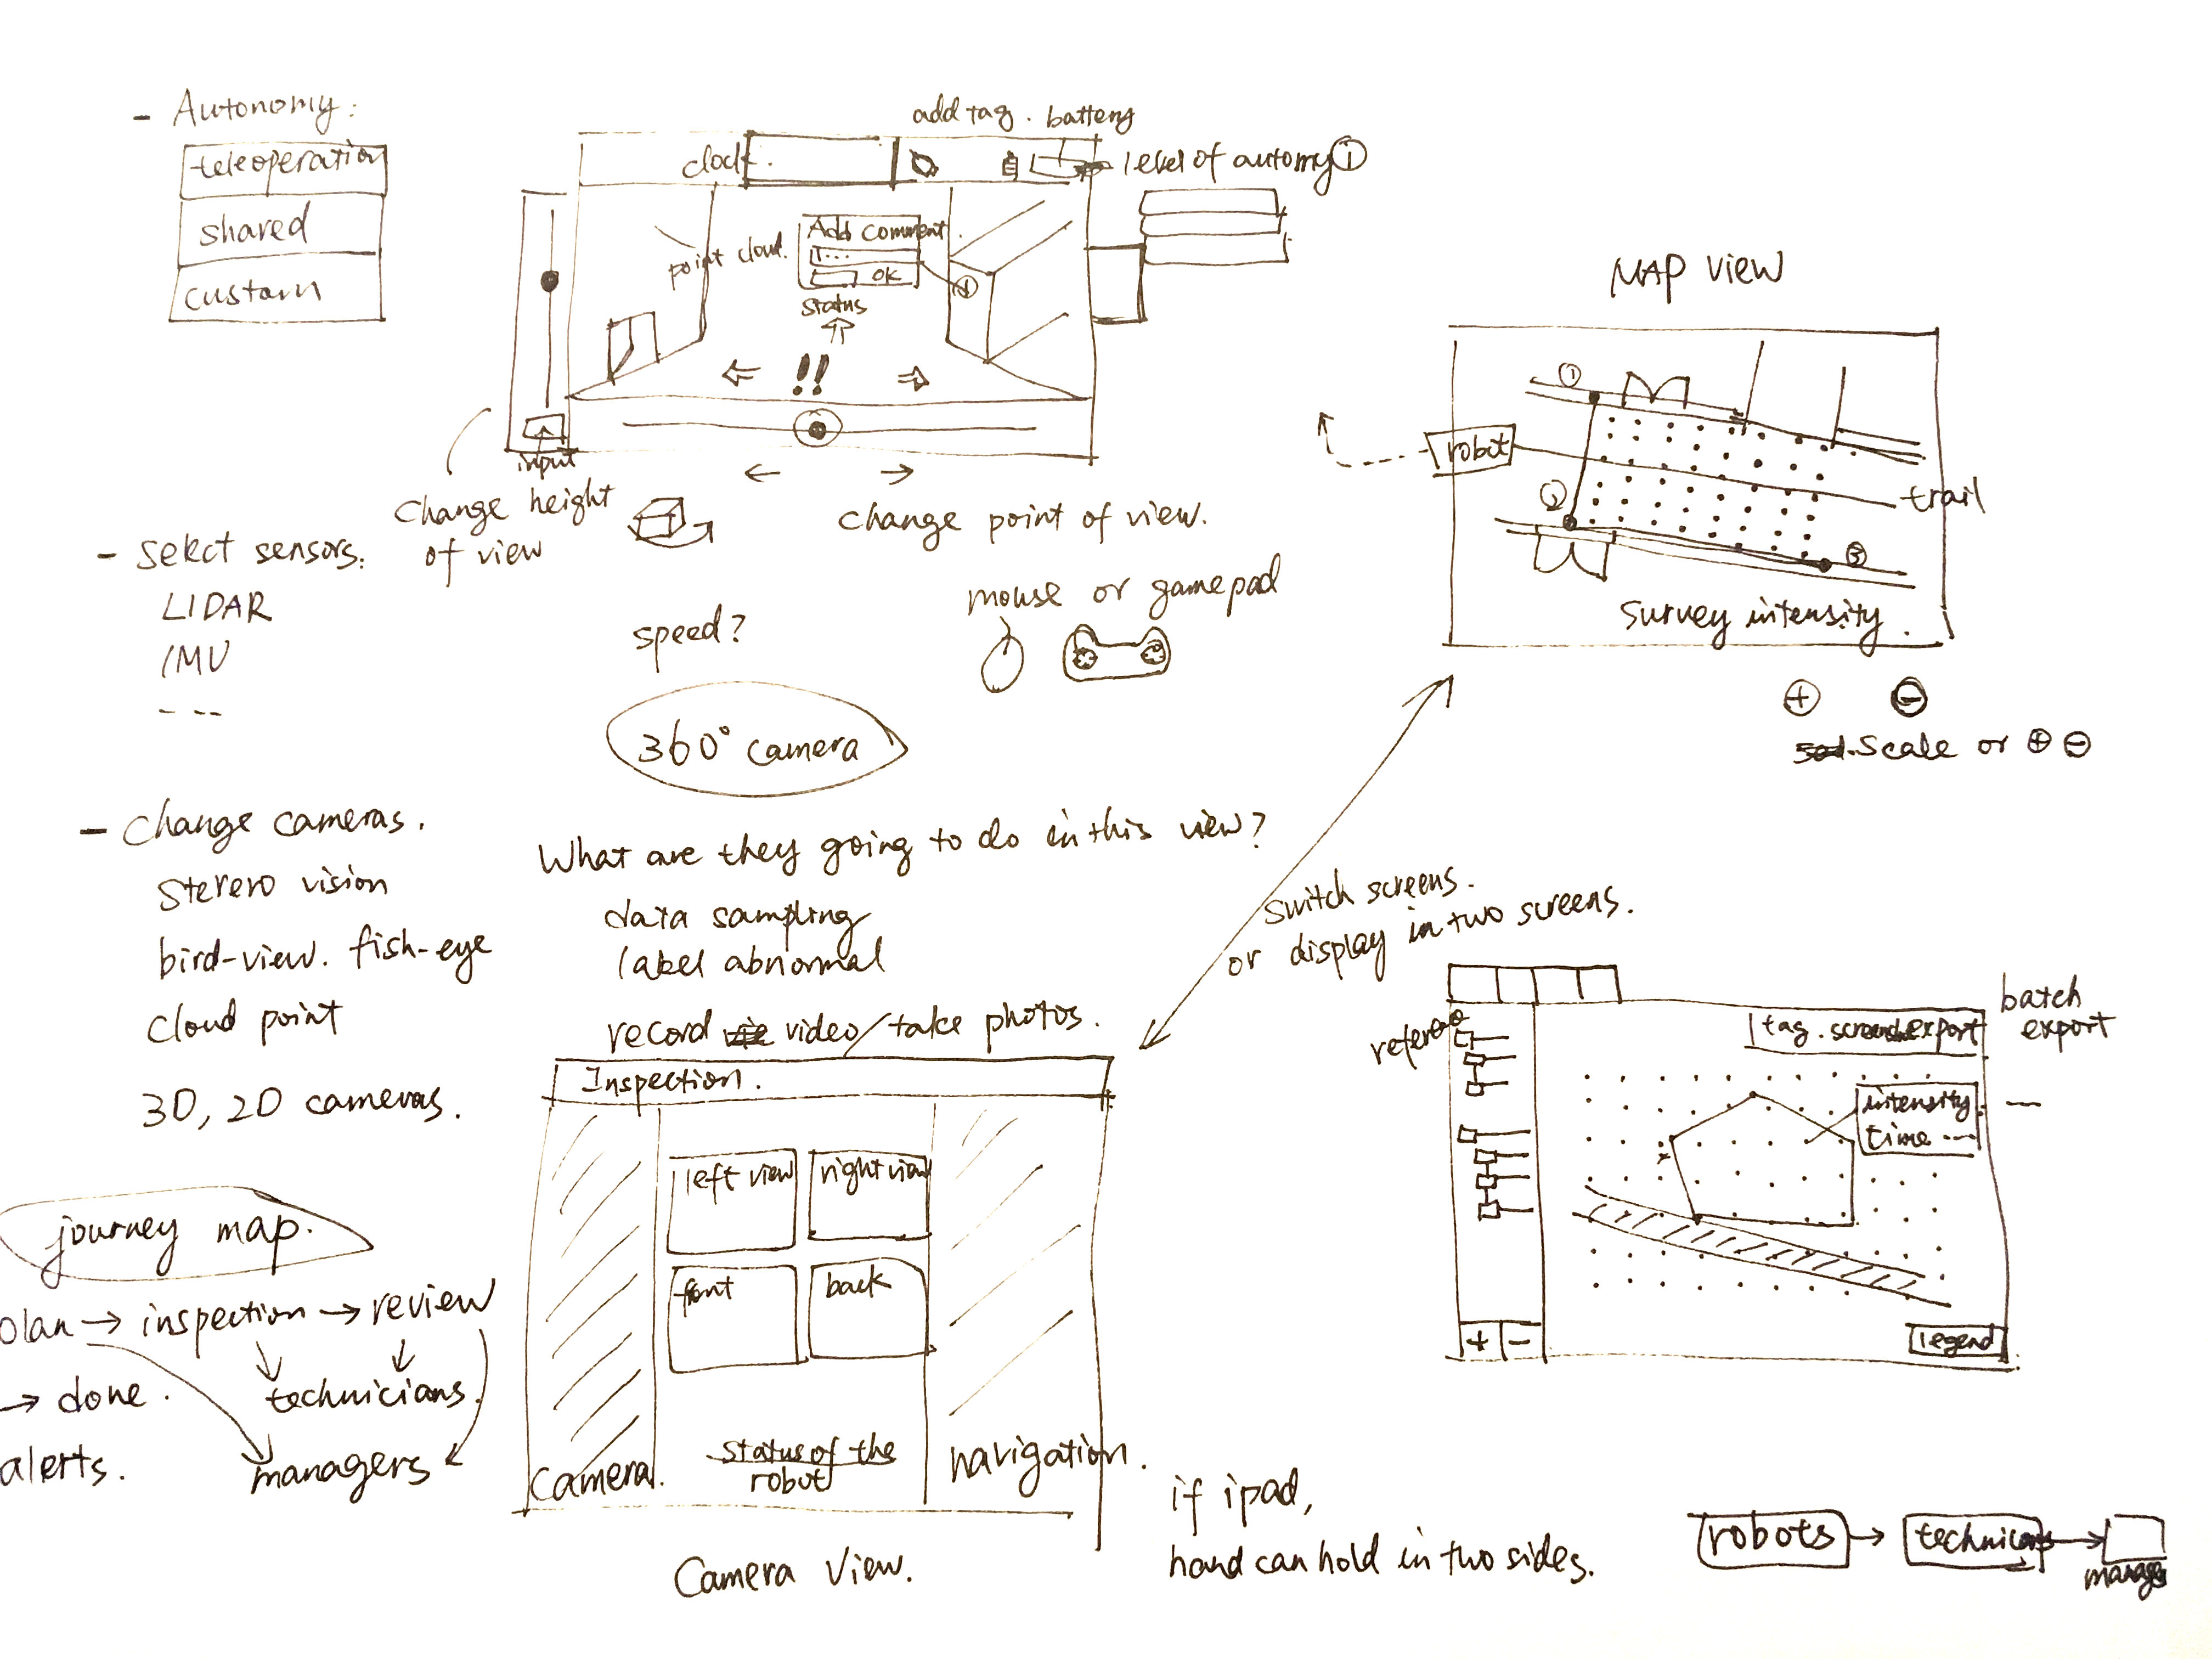 - Autonomy:
teleoperation
shared
custom
add tag. battery
clock.
level of automy ①
point cloud.
Add comment.
I...
OK
status
!!
input
change height
of view
change point of view.
mouse or gamepad
speed?
- select sensors:
LIDAR
IMU
- - -
360° camera
- change cameras.
Sterero vision
bird-view. fish-eye
cloud point
3D, 2D cameras.
What are they going to do in this view?
data sampling
label abnormal
record video/take photos.
MAP VIEW
①
robot
②
trail
③
survey intensity.
+ -
scale or ⊕ ⊖
switch screens.
or display in two screens.
batch
export
tag. export
intensity. --
time ---
+ -
legend
Inspection.
left view
right view
front
back
camera.
status of the
robot
navigation.
Camera View.
journey map.
plan → inspection → review
→ done.
technicians.
alerts.
managers
if ipad,
hand can hold in two sides.
robots → technicians →
manager